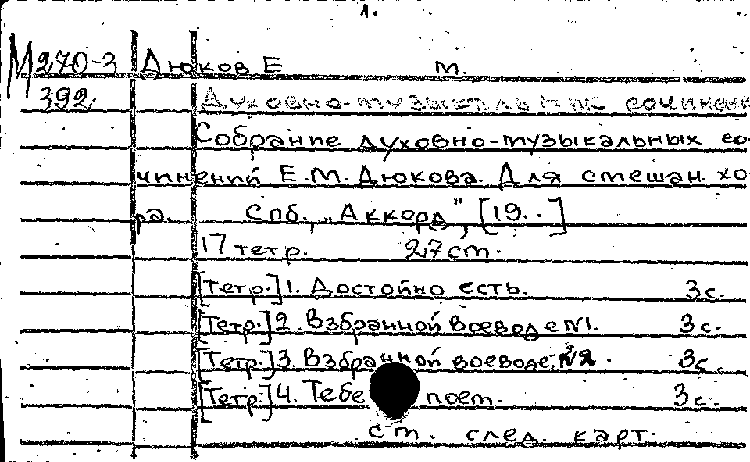 1.
М270-3 Дюков Е М.
392 Духовно-музыкальные сочинени
Собрание духовно-музыкальных со-
чинений Е.М. Дюкова. Для смешан. хо-
ра. Спб., „Аккорд", [19..]
17 тетр. 27 см.
[Тетр.] 1. Достойно есть. 3 с.
[Тетр.] 2. Взбранной воеводе №1. 3 с.
[Тетр.] 3 Взбранной воеводе, №2. 3 с.
[Тетр.] 4. Тебе поем. 3 с.
см. след. карт.